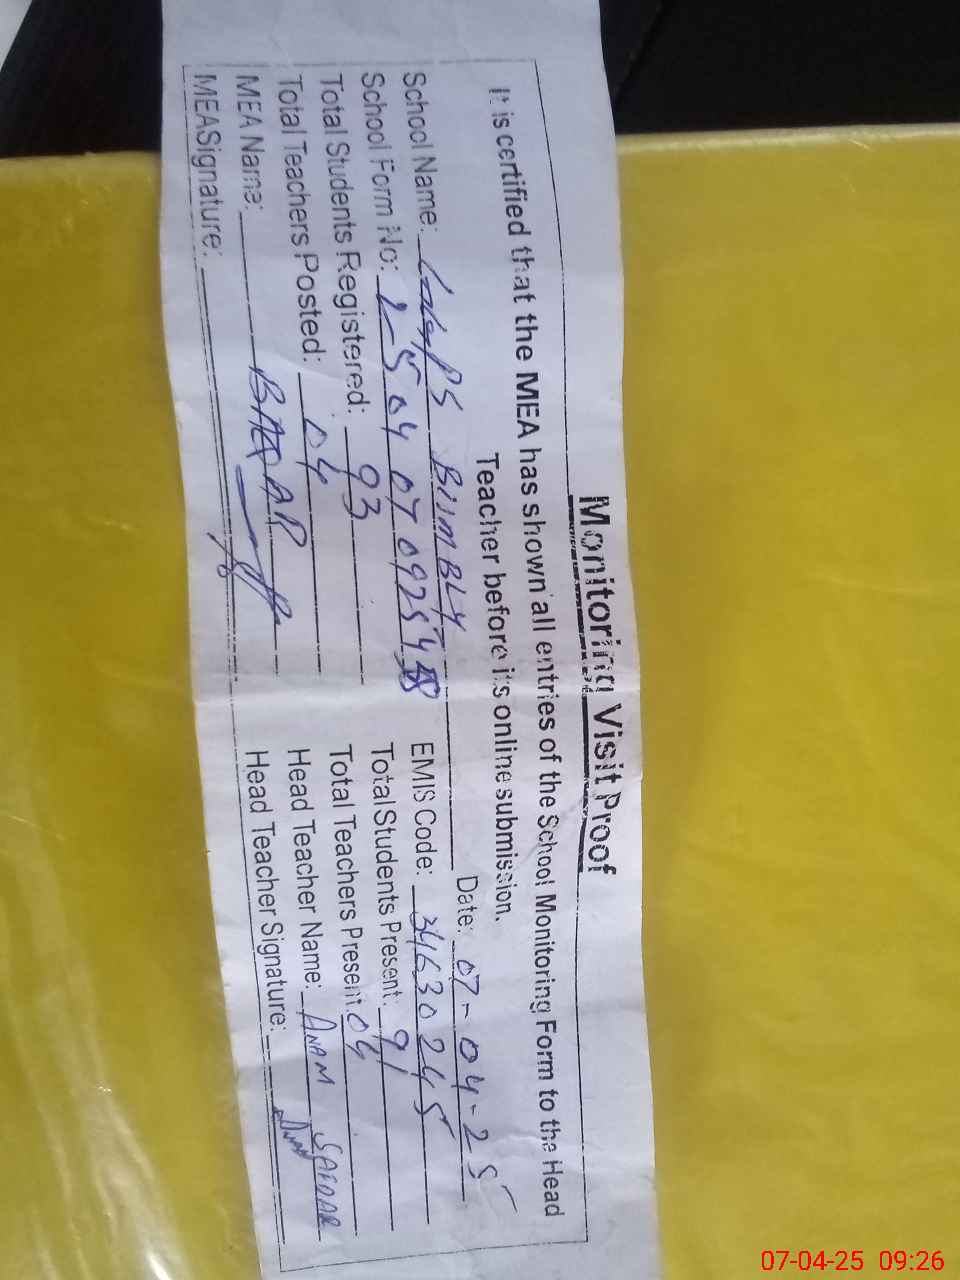 Monitoring Visit Proof
It is certified that the MEA has shown all entries of the School Monitoring Form to the Head
Teacher before its online submission.
Date: 07-04-25
School Name: PS
School Form No: EMIS Code: 34630245
Total Students Registered: 93 Total Students Present: 91
Total Teachers Posted: 04 Total Teachers Present: 04
MEA Name: Head Teacher Name: ANAM SAFDAR
MEA Signature: Head Teacher Signature: Anam
07-04-25 09:26